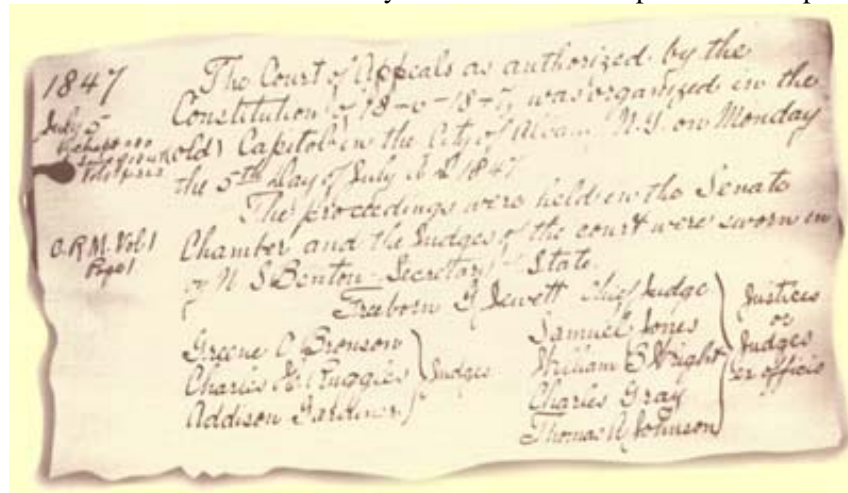 1847
July 5
The Court of Appeals as authorized by the
Constitution of 18-6-1847, was organized in the
(old) Capitol in the City of Albany N.Y. on Monday
the 5th day of July A D 1847
The proceedings were held in the Senate
C.R.M. Vol 1
Page 1
Chamber and the Judges of the court were sworn in
by N S Benton - Secretary of State.
Freeborn G Jewett Chief Judge
Greene C Bronson
Charles H Ruggles
Addison Gardiner
Judges
Samuel Jones
William B Wright
Charles Gray
Thomas A Johnson
Justices
or
Judges
ex officio